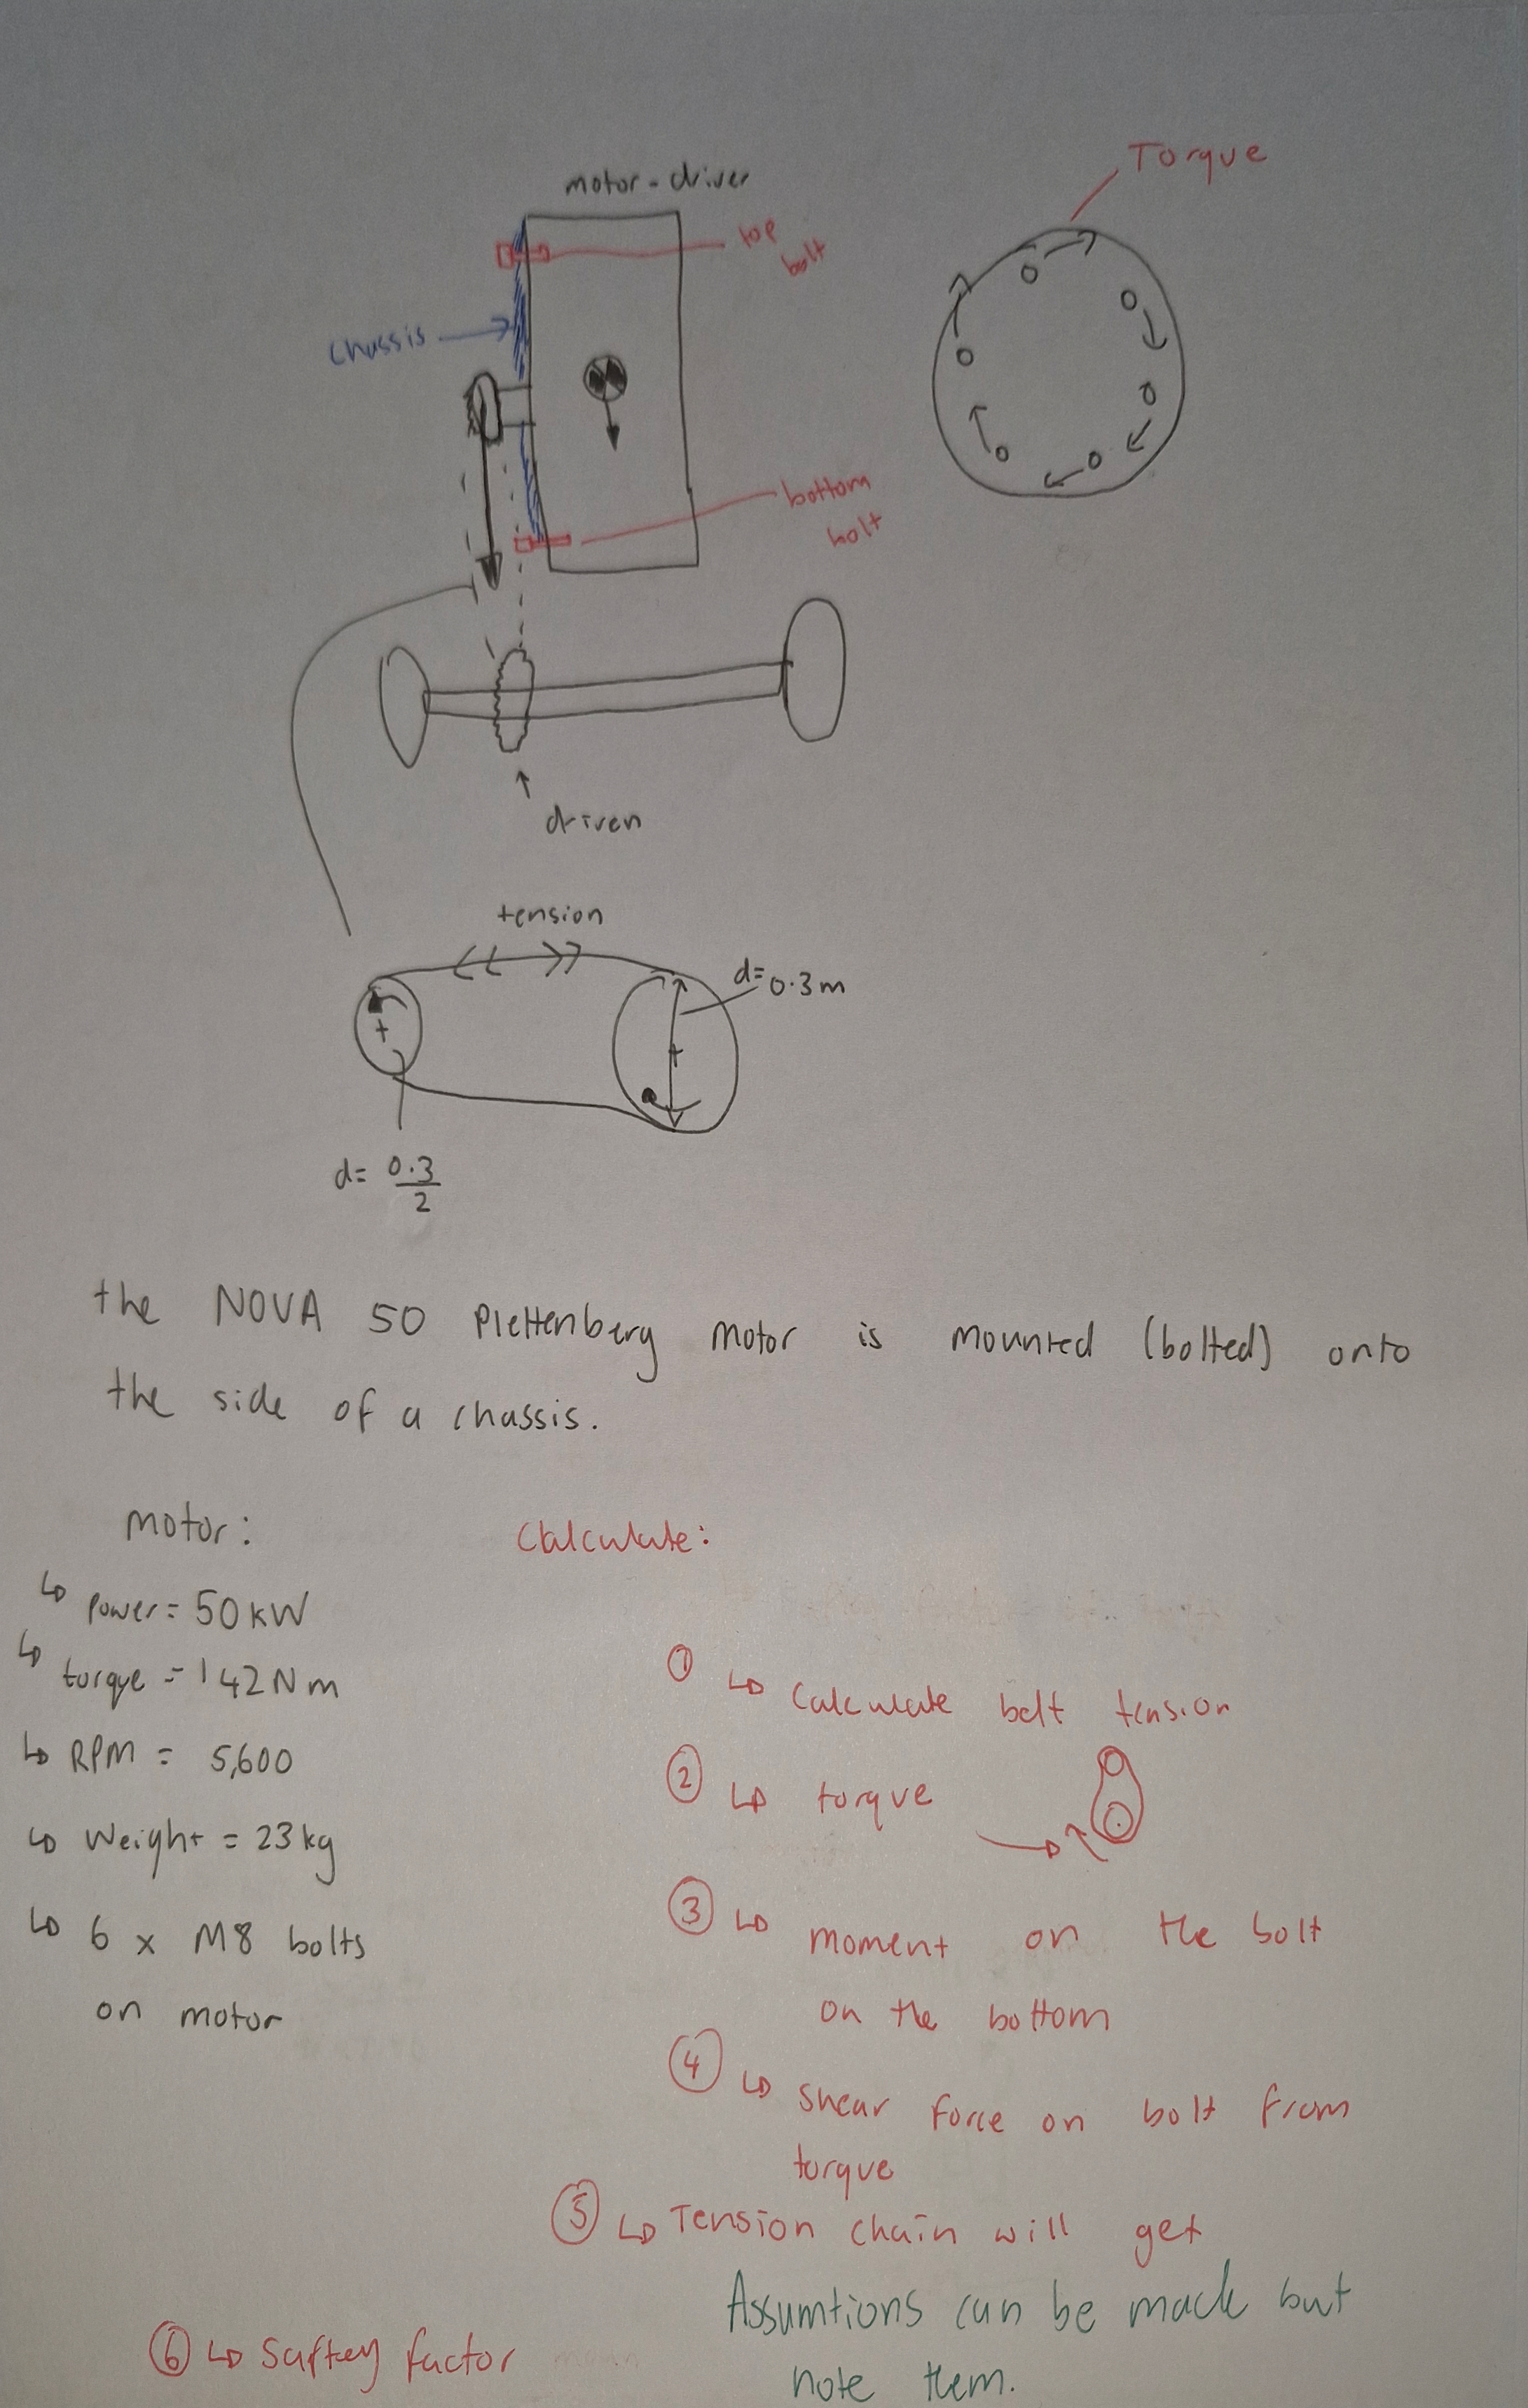 Torque
motor - driver
top
bolt
chassis
bottom
bolt
driven
tension
d=
0.3m
d= 0.3
2
the NOVA 50 Plettenberg motor is mounted (bolted) onto
the side of a chassis.
Motor:
Calculate:
↳ Power = 50kW
↳ torque = 142Nm
① ↳ Calculate belt tension
↳ RPM = 5,600
② ↳ torque
↳ Weight = 23kg
③ ↳ moment on the bolt
↳ 6 x M8 bolts
on motor
on the bottom
④ ↳ Shear Force on bolt from
torque
⑤ ↳ Tension chain will get
Assumtions can be made but
⑥ ↳ Saftey factor
note them.